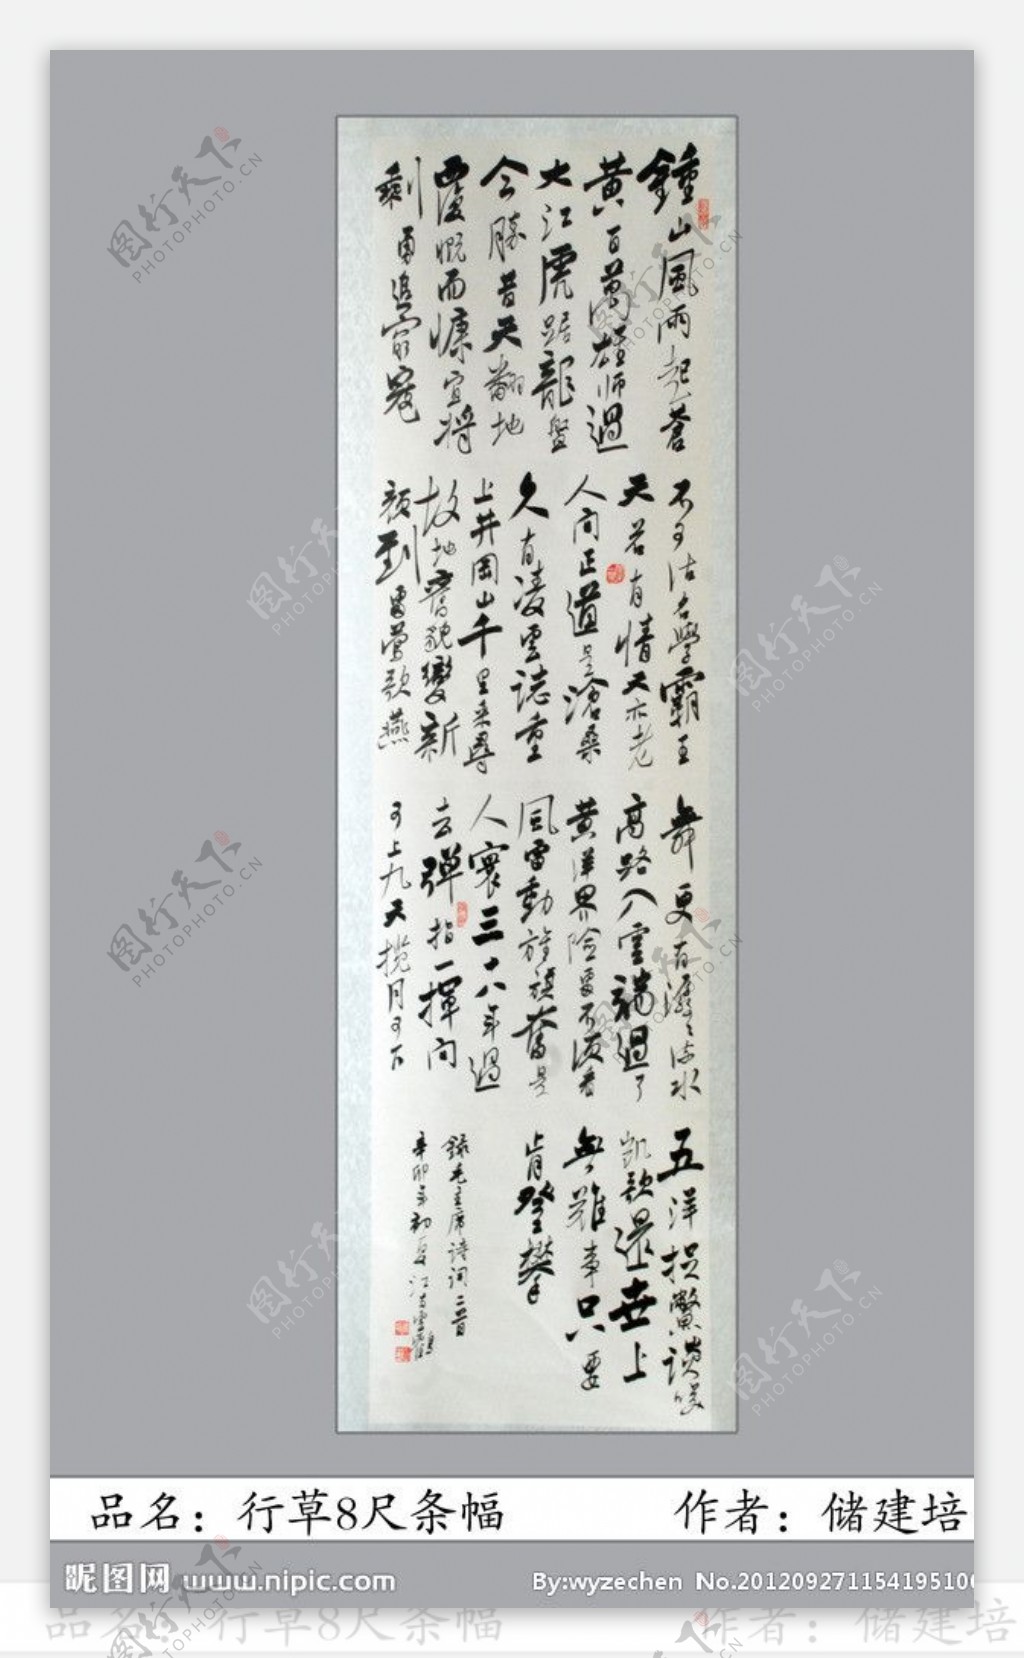 鍾山風雨起蒼
黃百萬雄師過
大江虎踞龍盤
今勝昔天翻地
覆慨而慷宜將
剩勇追窮寇
不可沽名學霸王
天若有情天亦老
人间正道是滄桑
久有凌雲誌重
上井岡山千里來尋
故地舊貌變新
顏到處鶯歌燕
舞更有潺々流水
高路入雲端過了
黃洋界險處不須看
風雷動旌旗奮是
人寰三十八年過
去彈指一揮间
可上九天攬月可下
五洋捉鱉談笑
凱歌還世上
無難事只要
肯登攀
錄毛主席詩詞二首
辛卯年初夏江
品名：行草8尺条幅
作者：储建培
昵图网 www.nipic.com
By:wyzechen No.201209271154195100
品名：行草8尺条幅
作者：储建培